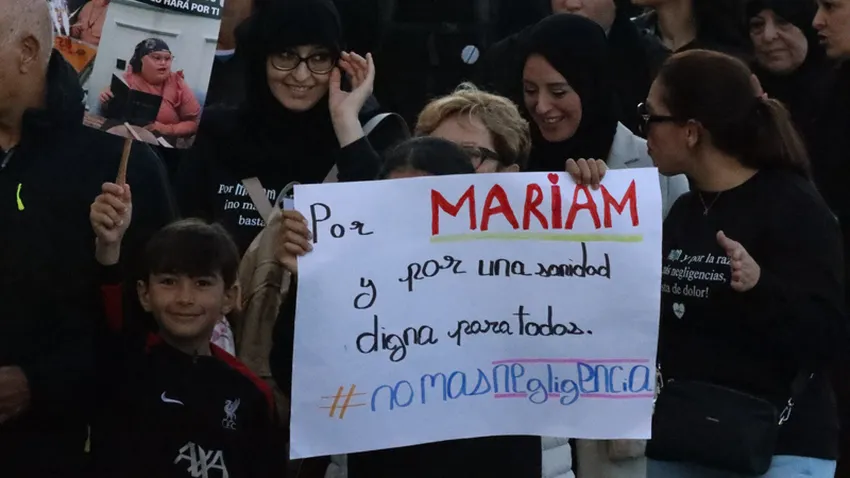 O HARÁ POR TI
Por M
¡no má
basta
Por MARIAM
y por una sanidad
digna para todos.
#nomasnegligencia
y por la raz
ás negligencias,
sta de dolor!
LFC
AXA